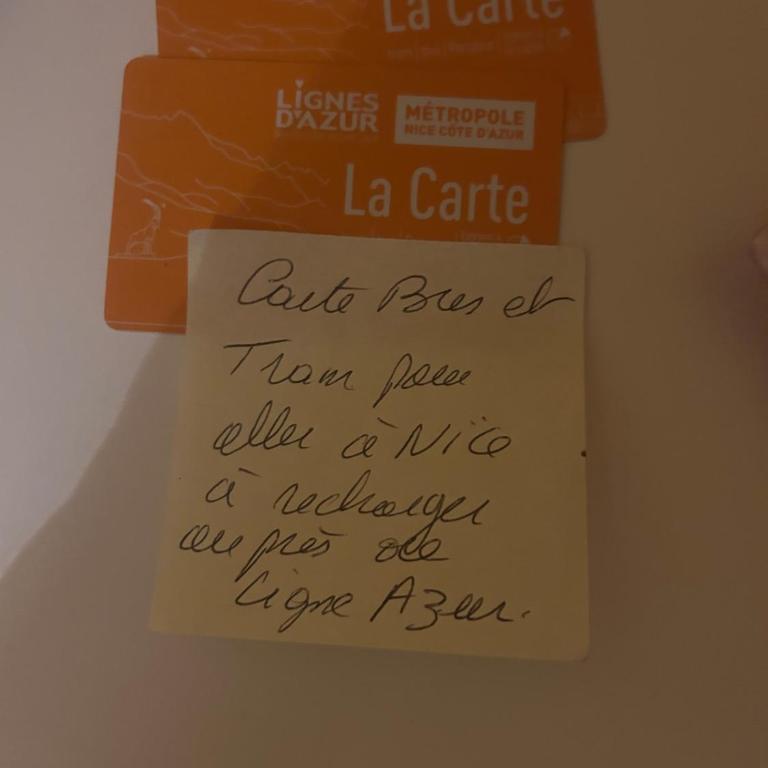 La Carte
LIGNES
D'AZUR
MÉTROPOLE
NICE CÔTE D'AZUR
La Carte
Carte Bus et
Tram pour
aller à Nice
à recharger
auprès de
Ligne Azur.